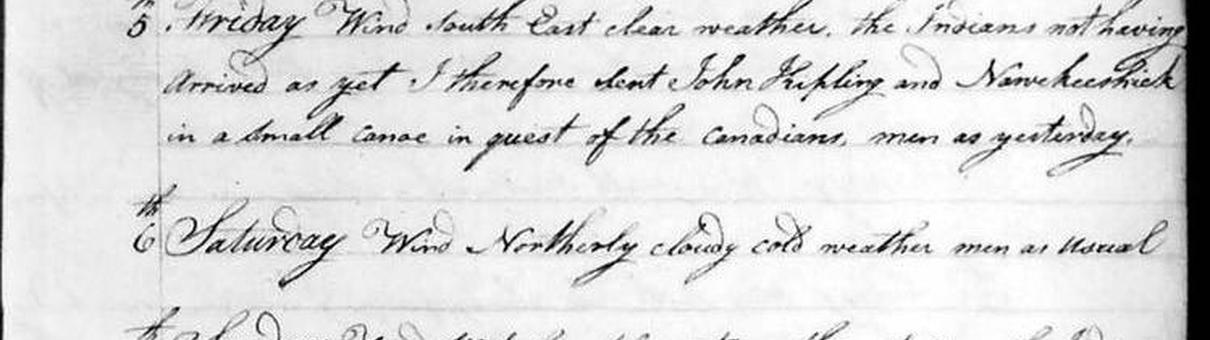 5 Friday Wind South East clear weather. the Indians not having
Arrived as yet I therefore sent John Kipling and Nawekeeshick
in a small canoe in quest of the Canadians, men as yesterday.
th
6 Saturday Wind Northerly cloudy cold weather men as Usual